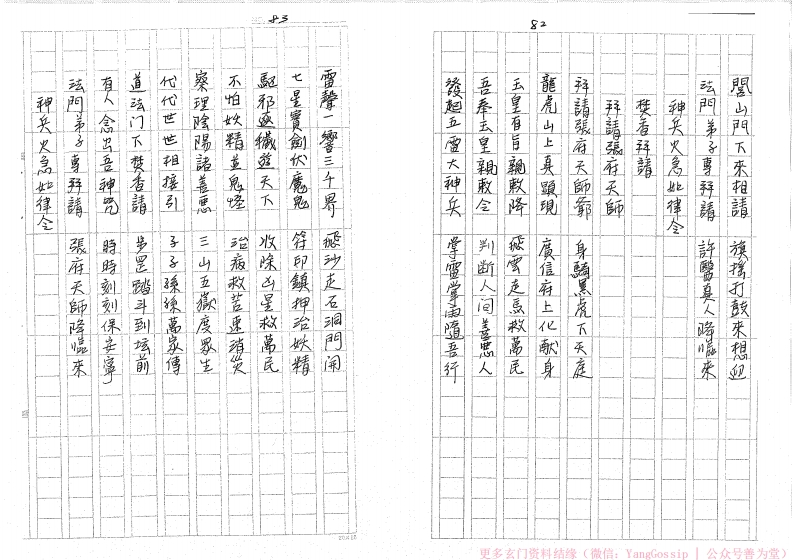 82
閭山門下來相請 旗搖打鼓來想迎
法門弟子專拜請 許醫真人降臨來
神兵火急如律令
焚香拜請
拜請張府天師
拜請張府天師爺 身騎黑虎下天庭
龍虎山上真顕現 廣信府上化献身
玉皇有旨親敕降 飛雲走馬救萬民
吾奉玉皇親敕令 判斷人间善悪人
發起五雷大神兵 掌雷掌雨隨吾行
83
雷聲一響三千界 飛沙走石洞門開
七星寶劍伏魔鬼 符印鎮押治妖精
駈邪逐穢遊天下 收除凶星救萬民
不怕妖精並鬼怪 治病救苦速消災
察理陰陽諸善悪 三山五嶽度眾生
代代世世相接引 子子孫孫萬家傳
道法门下焚香請 步罡踏斗到坛前
有人念出吾神咒 時時刻刻保安寧
法門弟子專拜請 張府天師降臨來
神兵火急如律令
20×15
更多玄门资料结缘（微信：YangGossip | 公众号善为堂）